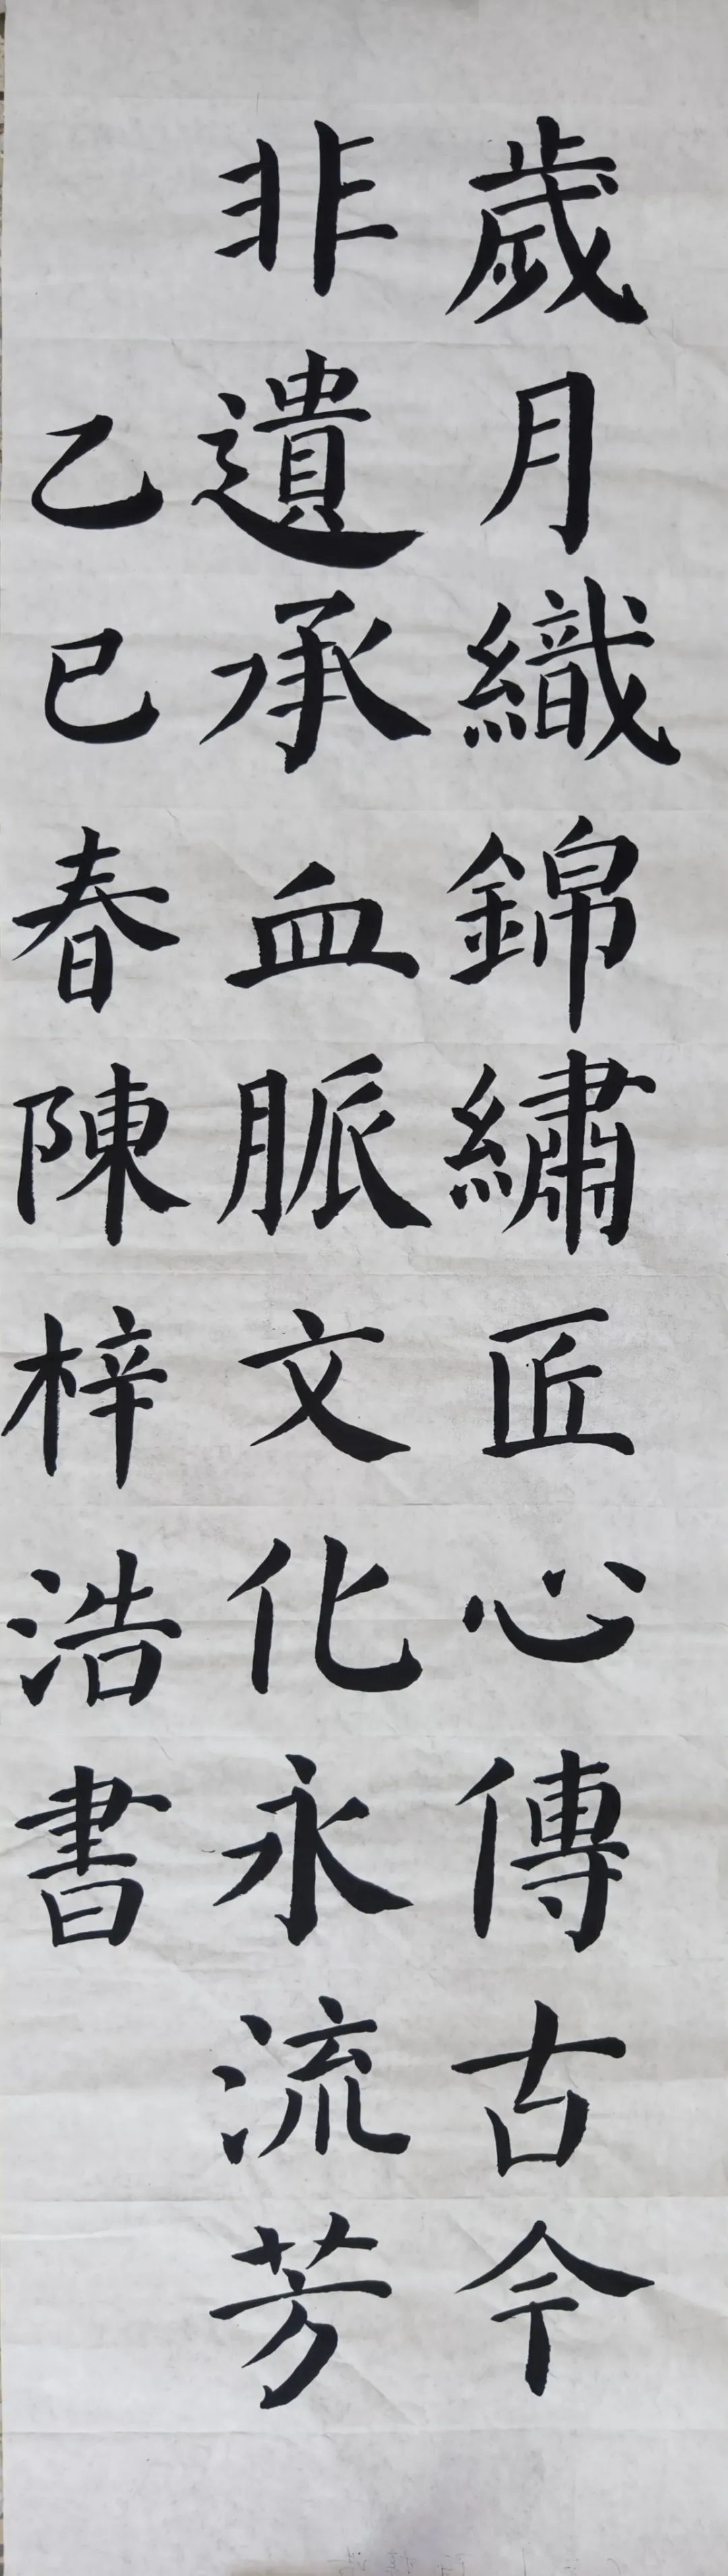 歲月織錦繡匠心傳古今
非遺承血脈文化永流芳
乙巳春陳梓浩書